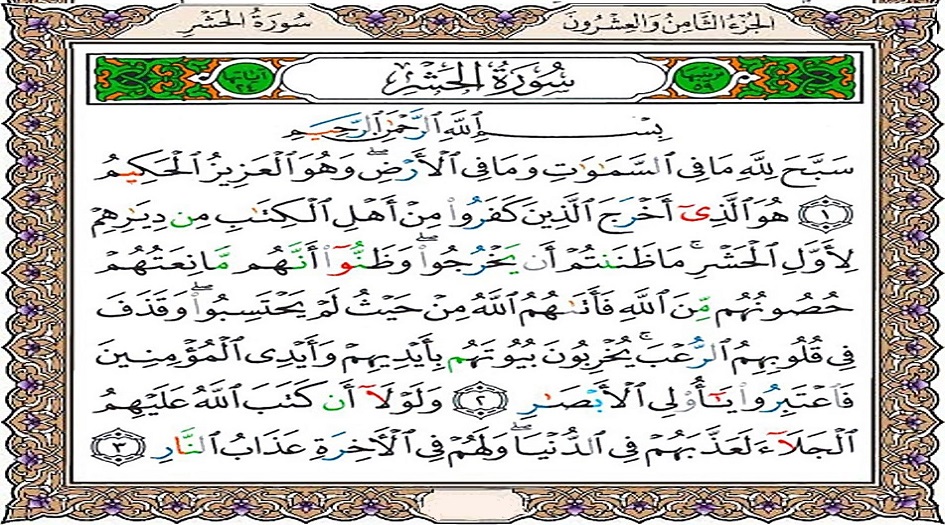 الجزء الثامن والعشرون سورة الحشر
ترتيبها ٥٩ سُورَةُ الحَشْرِ آياتها ٢٤
بِسْمِ ٱللَّهِ ٱلرَّحْمَٰنِ ٱلرَّحِيمِ
سَبَّحَ لِلَّهِ مَا فِي ٱلسَّمَٰوَٰتِ وَمَا فِي ٱلْأَرْضِۖ وَهُوَ ٱلْعَزِيزُ ٱلْحَكِيمُ
١ هُوَ ٱلَّذِىٓ أَخْرَجَ ٱلَّذِينَ كَفَرُوا۟ مِنْ أَهْلِ ٱلْكِتَٰبِ مِن دِيَٰرِهِمْ
لِأَوَّلِ ٱلْحَشْرِۚ مَا ظَنَنتُمْ أَن يَخْرُجُوا۟ۖ وَظَنُّوٓا۟ أَنَّهُم مَّانِعَتُهُمْ
حُصُونُهُم مِّنَ ٱللَّهِ فَأَتَىٰهُمُ ٱللَّهُ مِنْ حَيْثُ لَمْ يَحْتَسِبُوا۟ۖ وَقَذَفَ
فِي قُلُوبِهِمُ ٱلرُّعْبَۚ يُخْرِبُونَ بُيُوتَهُم بِأَيْدِيهِمْ وَأَيْدِى ٱلْمُؤْمِنِينَ
فَٱعْتَبِرُوا۟ يَٰٓأُو۟لِى ٱلْأَبْصَٰرِ ٢ وَلَوْلَآ أَن كَتَبَ ٱللَّهُ عَلَيْهِمُ
ٱلْجَلَآءَ لَعَذَّبَهُمْ فِي ٱلدُّنْيَاۖ وَلَهُمْ فِي ٱلْأَخِرَةِ عَذَابُ ٱلنَّارِ ٣